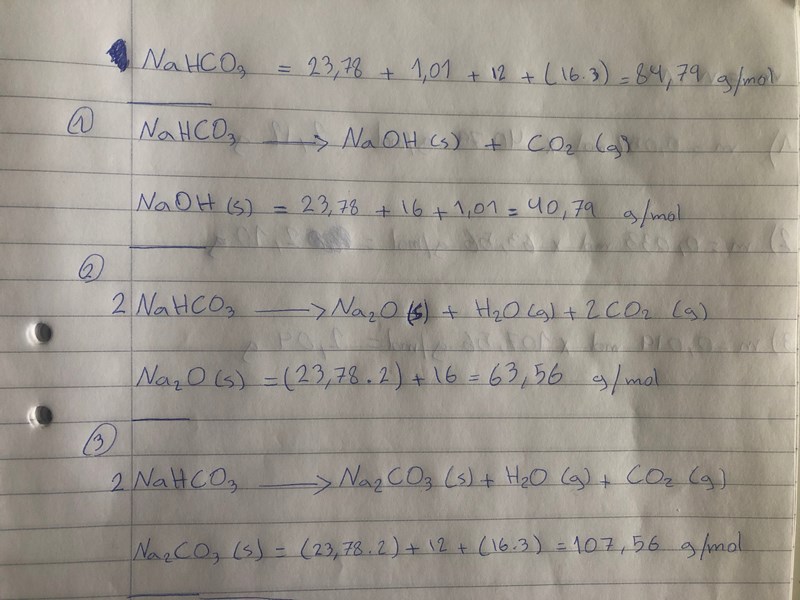 NaHCO₃ = 23,78 + 1,01 + 12 + (16.3) = 84,79 g/mol
① NaHCO₃ → NaOH (s) + CO₂ (g)
NaOH (s) = 23,78 + 16 + 1,01 = 40,79 g/mol
②
2 NaHCO₃ → Na₂O (s) + H₂O (g) + 2 CO₂ (g)
Na₂O (s) = (23,78 . 2) + 16 = 63,56 g/mol
③
2 NaHCO₃ → Na₂CO₃ (s) + H₂O (g) + CO₂ (g)
Na₂CO₃ (s) = (23,78 . 2) + 12 + (16.3) = 107,56 g/mol